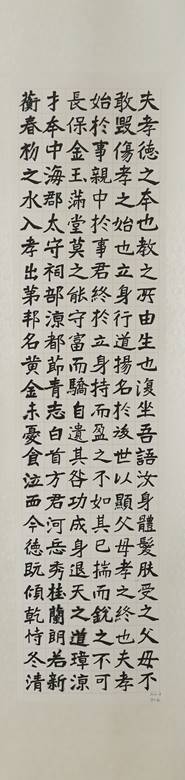 夫孝德之本也教之所由生也復坐吾語汝身體髮膚受之父母不
敢毀傷孝之始也立身行道揚名於後世以顯父母孝之終也夫孝
始於事親中於事君終於立身持而盈之不如其已揣而銳之不可
長保金玉滿堂莫之能守富而驕自遺其咎功成身退天之道璋涼
才本中海郡太守祠部涼都節青志白首方君河岳秀桂蘭朗若新
蘅春枌之水入孝出第邦名黄金未憂食泣西今德阮傾乾恃冬清